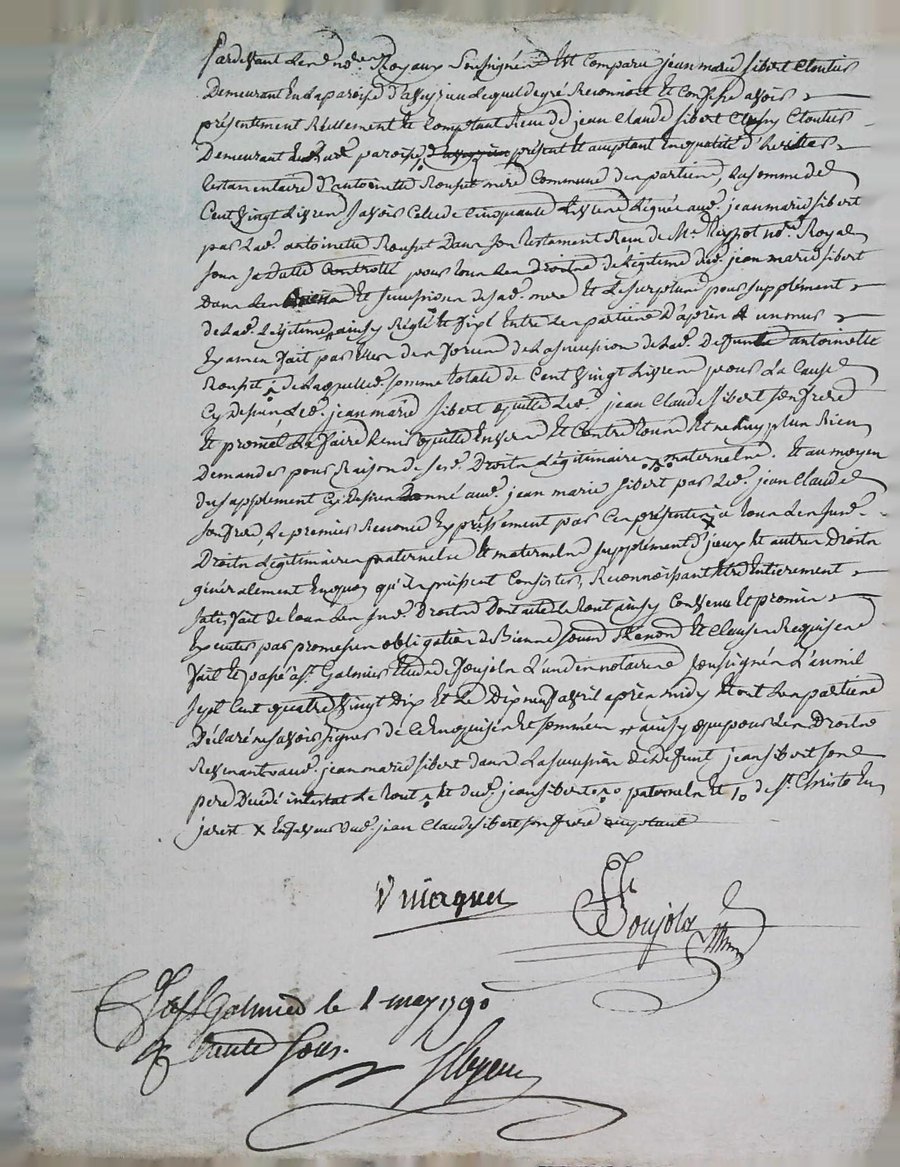 Pardevant les nores Royaux Soussignés Est Comparu jean marie Sibert Cloutier
Demeurant En la paroisse d'aveyzieu Lequel de gré Reconnoit Et Confesse avoir
présentement Réellement Et Comptant Reçu de jean Claude Sibert aussy Cloutier
Demeurant En lad. paroisse présent Et acceptant En qualité d'heritier
testamentaire d'antoinette Rousset mere Commune des parties, La somme de
Cent Vingt Livres Savoir Celle de Cinquante Livres Léguée aud. jean marie Sibert
par lad. antoinette Rousset Dans Son testament Reçu de Me nore Royal
sous sa datte Controllé pour tous les Droits de légitime dud. jean marie Sibert
Dans les Et Succession de sad. mere Et Le surplus pour supplément
de lad. Légitime, ainsy Réglé Et fixé Entre les parties D'après un mur
Examen fait par Elles des forces de La succession de lad. Defunte antoinette
Rousset, de laquelle somme totale de Cent Vingt Livres pour La Cause
Cy dessus, Led. jean marie Sibert quitte Led. jean Claude Sibert son frere
Et promet Le faire tenir quitte Envers Et Contre tous Et ne luy plus Rien
Demander pour Raison de sesd. Droits Légitimaires maternels. Et au moyen
du supplément Cy dessus Donné aud. jean marie Sibert par Led. jean Claude
son frere, Le premier Renonce Expressément par Ces présentes x à tous les susd.
Droits Légitimaires paternels Et maternels supplément d'iceux Et autres Droits
généralement En quoy qu'ils puissent Consister, Reconnoissant Etre Entierement
satisfait de tous les susd. Droits Dont acte Le tout ainsy Convenu Et promis
Executer par promesses obligation de Biens Soumission Renon. Et Clauses Requises
fait Et passé à St. Galmier Etude de Soujols L'un des notaires soussignés L'an mil
Sept Cent quatre Vingt Dix Et Le Dix neuf avril après midy Et ont Les parties
Déclaré ne savoir signer de Ce Enquises Et sommées, ainsy que pour les Droits
Revenant aud. jean marie Sibert dans La succession de Defunt jean Sibert son
pere Décédé intestat Le tout Et dud. jean Sibert paternels Et de St. Christo En
jarest x En faveur dud. jean Claude Sibert son frere acceptant
Soujols
St Galmier le 1 may 1790
R trente Sous.